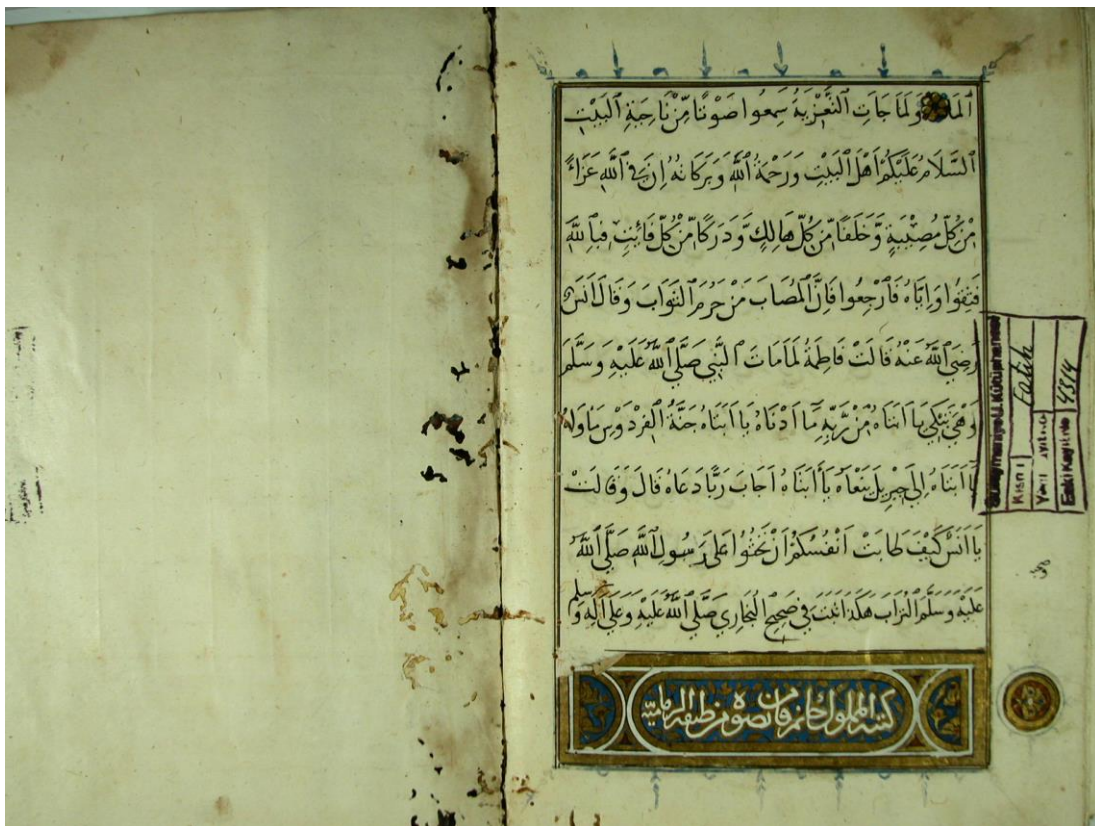 ٱلْمَا وَلَمَا جَاتِ ٱلتَّعْزِيَةُ سَمِعُوا صَوْتًا مِّنْ نَاحِيَةِ ٱلْبَيْتِ
ٱلسَّلَامُ عَلَيْكُمْ أَهْلَ ٱلْبَيْتِ وَرَحْمَةُ ٱللَّهِ وَبَرَكَاتُهُ إِنَّ فِي ٱللَّهِ عَزَاءً
مِّنْ كُلِّ مُصِيْبَةٍ وَّخَلَفًا مِّنْ كُلِّ هَالِكٍ وَّدَرَكًا مِّنْ كُلِّ فَائِتٍ فَبِٱللَّهِ
فَثِقُوا وَإِيَّاهُ فَٱرْجِعُوا فَإِنَّ ٱلْمُصَابَ مَنْ حُرِمَ ٱلثَّوَابَ وَقَالَ أَنَسٌ
رَضِيَ ٱللَّهُ عَنْهُ قَالَتْ فَاطِمَةُ لَمَا مَاتَ ٱلنَّبِي صَلَّى ٱللَّهُ عَلَيْهِ وَسَلَّمَ
وَهْيَ تَبْكِي يَا أَبَتَاهُ مِنْ رَّبِّهِ مَا أَدْنَاهُ يَا أَبَتَاهُ جَنَّةُ ٱلْفِرْدَوْسِ مَأْوَاهُ
يَا أَبَتَاهُ إِلَى جِبْرِيلَ نَنْعَاهُ يَا أَبَتَاهُ أَجَابَ رَبًّا دَعَاهُ قَالَ وَقَالَتْ
يَا أَنَسُ كَيْفَ طَابَتْ أَنْفُسُكُمْ أَنْ تَحْثُوا عَلَى رَسُولِ ٱللَّهِ صَلَّى ٱللَّهُ
عَلَيْهِ وَسَلَّمَ ٱلتُّرَابَ هَكَذَا ثَبَتَ فِي صَحِيحِ ٱلْبُخَارِي صَلَّى ٱللَّهُ عَلَيْهِ وَعَلَى آلِهِ وَسَلَّمَ
كتبه المملوك جانم من قانصوه من طبقة الزمامية
Süleymaniye U. Kütüphanesi
Kısmı Fatih
Yeni Kayıt No
Eski Kayıt No 4314